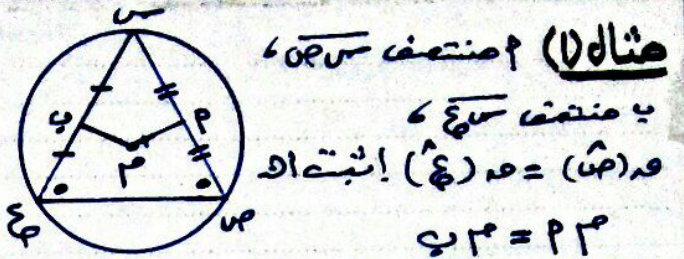 مثال (١) م منتصف س ص ،
ب منتصف س ع ،
ق (ص) = ق (ع) إثبت أن
م م = م ب
س
ب
م
م
ع
ص